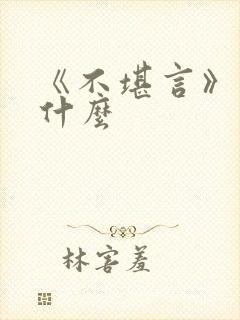 《不堪言》
什麼
林害羞